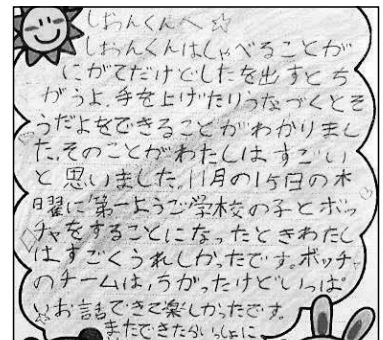 しおんくんへ☆
しおんくんはしゃべることが
にがてだけどしたを出すとち
がうよ、手を上げたりうなづくとそ
うだよをできることがわかりまし
た。そのことがわたしはすごい
と思いました。11月の15日の木
曜に第一ようご学校の子とボッ
チャをすることになったときわたし
はすごくうれしかったです。ボッチャ
のチームは、ちがったけどいっぱ
いお話できて楽しかったです。
またできたらいっしょに